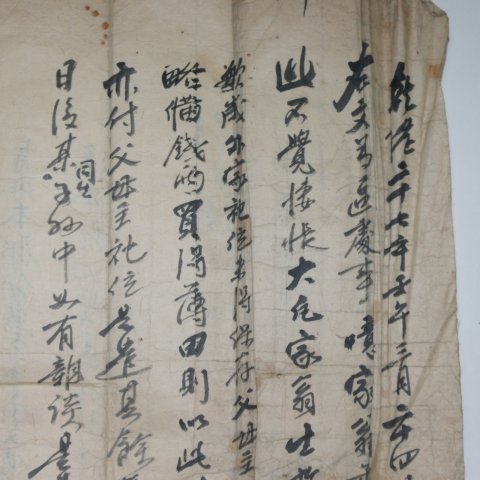 乾隆二十七年壬午三月二十四
右文爲區處事噫家翁
此不覺悽悵大凡家翁生
歎哉外家祀位未得保存父母主
略備錢兩買得薄田則以此
亦付父母主祀位是遣其餘
日後某同生子孫中如有雜談是